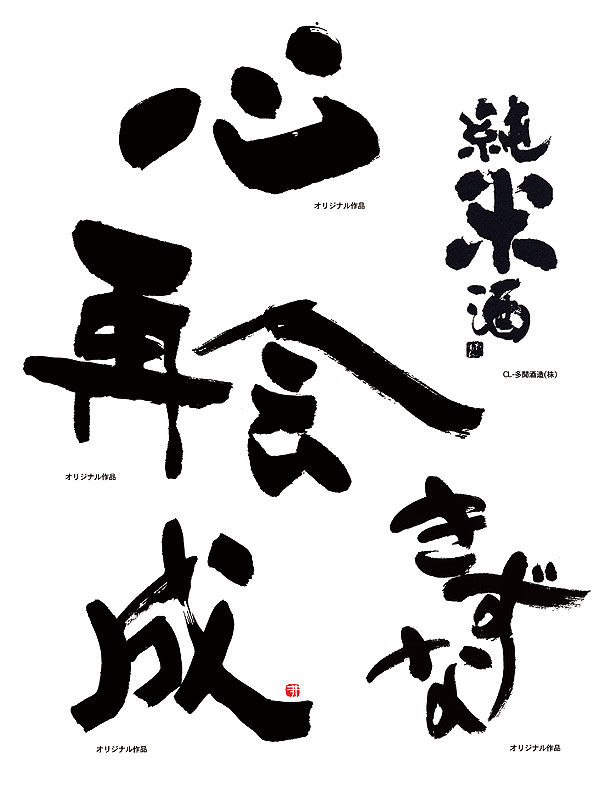 心
オリジナル作品
純
米
酒
CL-多聞酒造(株)
再会
オリジナル作品
きずな
オリジナル作品
成
オリジナル作品